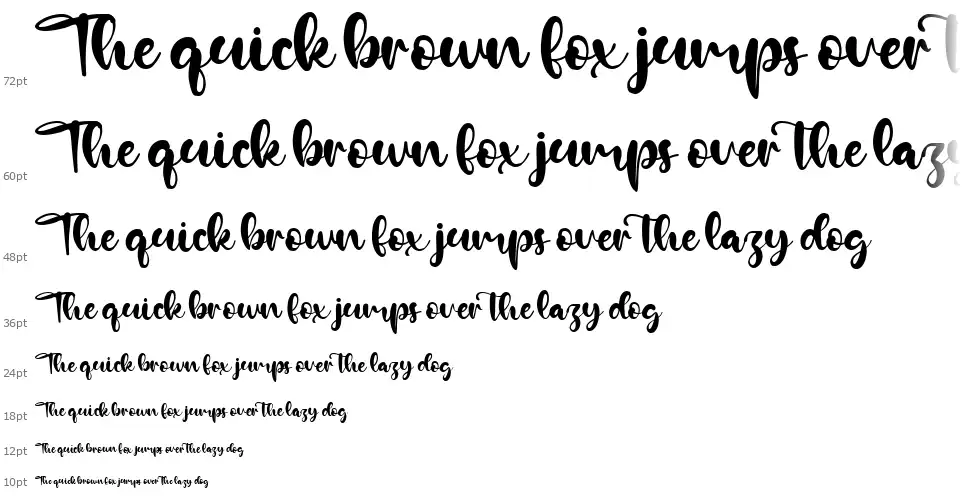 The quick brown fox jumps over
72pt
The quick brown fox jumps over the lazy
60pt
The quick brown fox jumps over the lazy dog
48pt
The quick brown fox jumps over the lazy dog
36pt
The quick brown fox jumps over the lazy dog
24pt
The quick brown fox jumps over the lazy dog
18pt
The quick brown fox jumps over the lazy dog
12pt
The quick brown fox jumps over the lazy dog
10pt